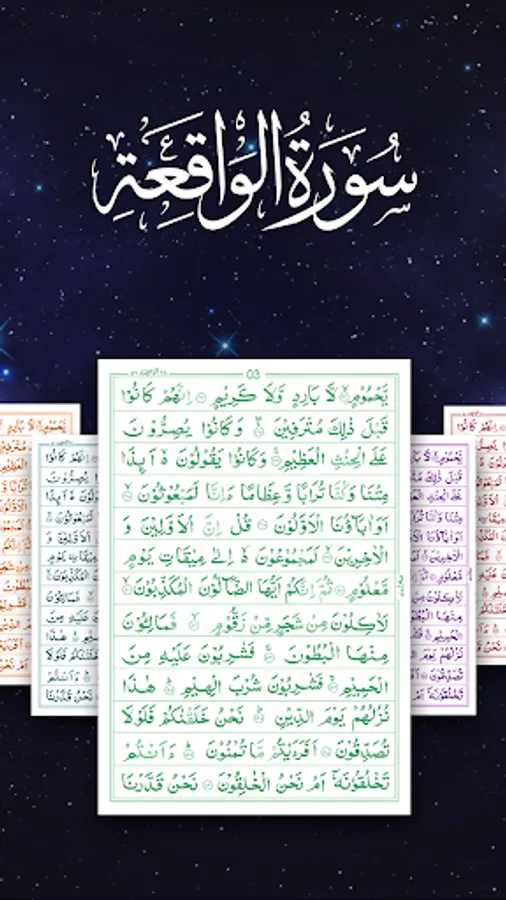 سُورَةُ الْوَاقِعَةِ
03
يَّحْمُوْمٍ لَّا بَارِدٍ وَّلَا كَرِيْمٍ اِنَّهُمْ كَانُوْا
قَبْلَ ذٰلِكَ مُتْرَفِيْنَ وَكَانُوْا يُصِرُّوْنَ
عَلَى الْحِنْثِ الْعَظِيْمِ وَكَانُوْا يَقُوْلُوْنَ اَىِٕذَا
مِتْنَا وَكُنَّا تُرَابًا وَّعِظَامًا ءَاِنَّا لَمَبْعُوْثُوْنَ
اَوَاٰبَآؤُنَا الْاَوَّلُوْنَ قُلْ اِنَّ الْاَوَّلِيْنَ وَ
الْاٰخِرِيْنَ لَمَجْمُوْعُوْنَ اِلٰى مِيْقَاتِ يَوْمٍ
مَّعْلُوْمٍ ثُمَّ اِنَّكُمْ اَيُّهَا الضَّآلُّوْنَ الْمُكَذِّبُوْنَ
لَاٰكِلُوْنَ مِنْ شَجَرٍ مِّنْ زَقُّوْمٍ فَمَالِـُٔوْنَ
مِنْهَا الْبُطُوْنَ فَشٰرِبُوْنَ عَلَيْهِ مِنَ
الْحَمِيْمِ فَشٰرِبُوْنَ شُرْبَ الْهِيْمِ هٰذَا
نُزُلُهُمْ يَوْمَ الدِّيْنِ نَحْنُ خَلَقْنٰكُمْ فَلَوْلَا
تُصَدِّقُوْنَ اَفَرَءَيْتُمْ مَّا تُمْنُوْنَ ءَاَنْتُمْ
تَخْلُقُوْنَهٗٓ اَمْ نَحْنُ الْخٰلِقُوْنَ نَحْنُ قَدَّرْنَا